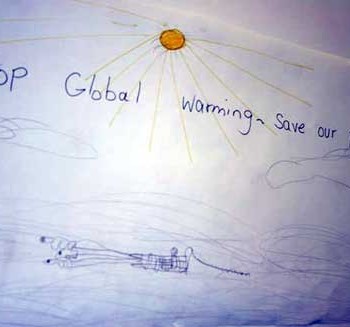 OP Global Warming~ Save our